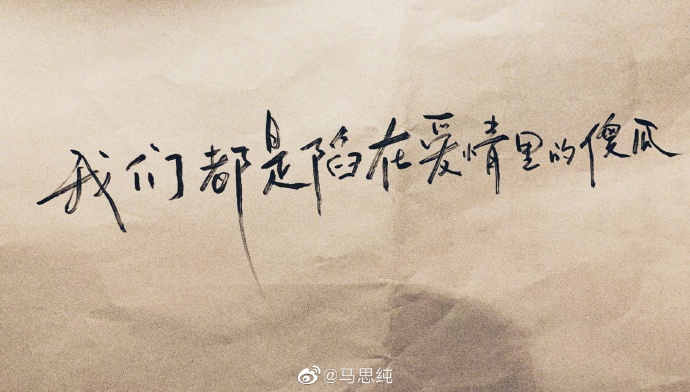 我们都是陷在爱情里的傻瓜
@马思纯